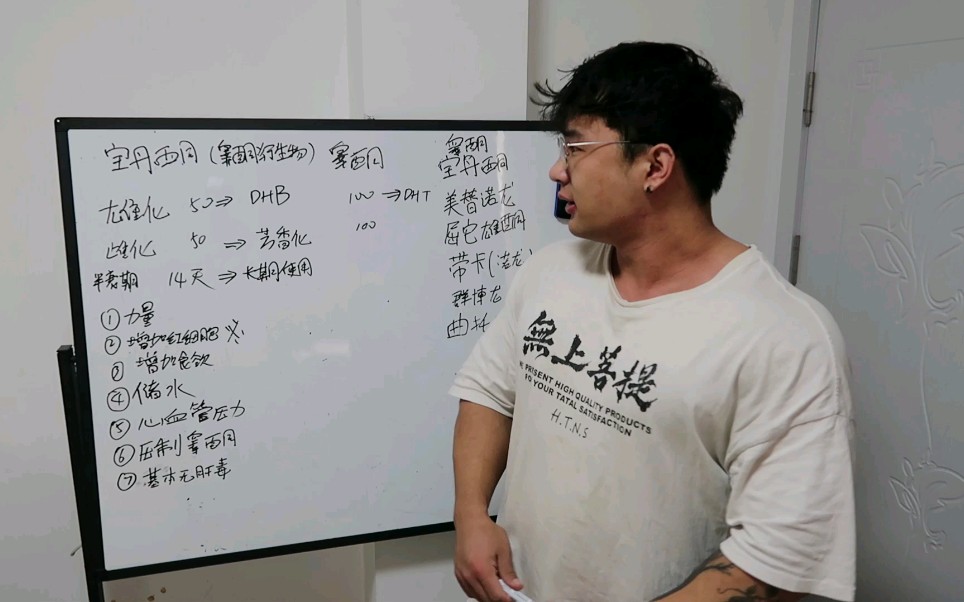 宝丹酉同(睾酮衍生物) 睾酉同
尤隹化 50⇒ DHB 100⇒DHT
雌化 50 ⇒ 芳香化 100
半衰期 14天⇒长期使用
①力量
②增加红细胞※
③增加食饮
④储水
⑤心血管压力
⑥压制睾酉同
⑦基本无肝毒
睾酮
宝丹酉同
美替诺龙
屈它雄酮
带卡(诺龙)
群博龙
曲托
無上菩提
PRESENT HIGH QUALITY PRODUCTS
TO YOUR TATAL SATISFACTION
H.T.N.S